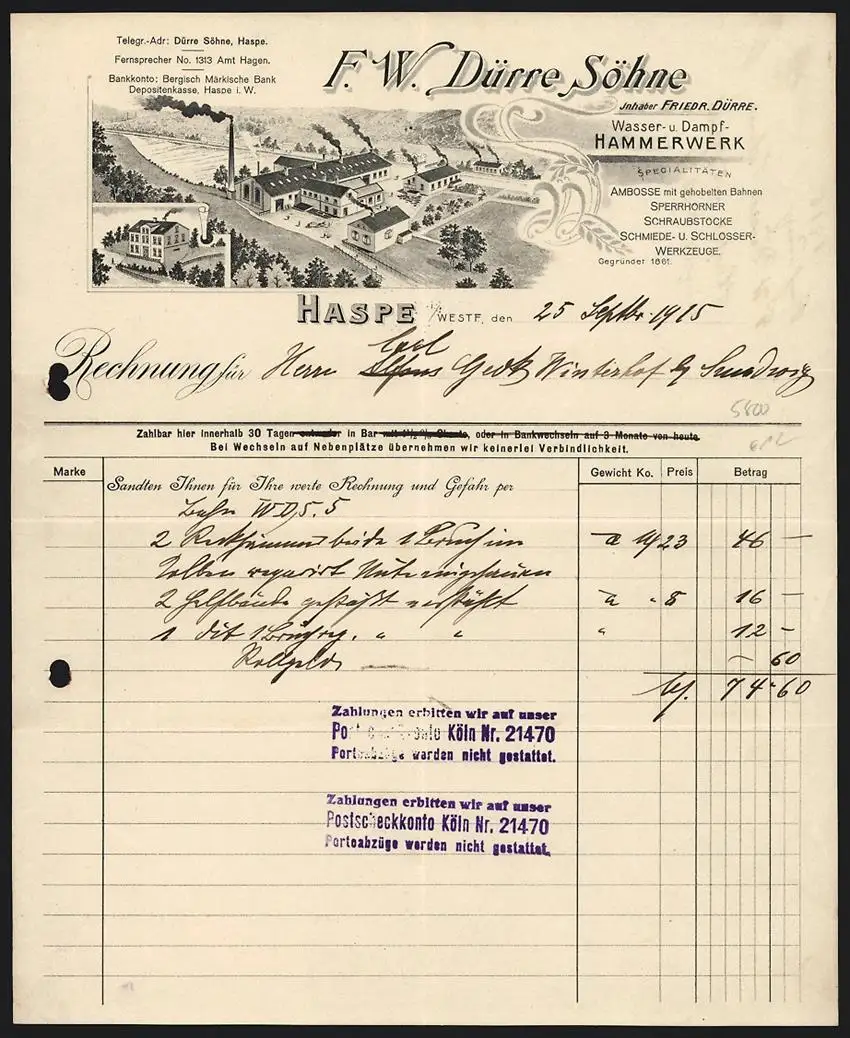 Telegr.-Adr: Dürre Söhne, Haspe.
Fernsprecher No. 1313 Amt Hagen.
Bankkonto: Bergisch Märkische Bank
Depositenkasse, Haspe i. W.
F. W. Dürre Söhne
Inhaber FRIEDR. DÜRRE.
Wasser- u. Dampf-
HAMMERWERK
SPECIALITÄTEN
AMBOSSE mit gehobelten Bahnen
SPERRHÖRNER
SCHRAUBSTÖCKE
SCHMIEDE- U. SCHLOSSER-
WERKZEUGE.
Gegründet 1861.
HASPE i/WESTF, den 25 Septbr. 1915
Carl
Rechnung für Herrn Alfons Gerh Winterhof Sundwig
5800
612
Zahlbar hier innerhalb 30 Tagen entweder in Bar mit 1½ % Skonto, oder in Bankwechseln auf 3 Monate von heute.
Bei Wechseln auf Nebenplätze übernehmen wir keinerlei Verbindlichkeit.
Marke
Gewicht Ko. Preis Betrag
Sandten Ihnen für Ihre werte Rechnung und Gefahr per
Bahn W.D. 5.5
2 beide 1 Bruch im
a 23 46 —
Kolben repariert Nute eingehauen
2 gestäßt verstählt a " 8 16 —
1 dit " " " 12 —
Rollgeld — — 60
74.60
Zahlungen erbitten wir auf unser
Postscheckkonto Köln Nr. 21470
Portoabzüge werden nicht gestattet.
Zahlungen erbitten wir auf unser
Postscheckkonto Köln Nr. 21470
Portoabzüge werden nicht gestattet.